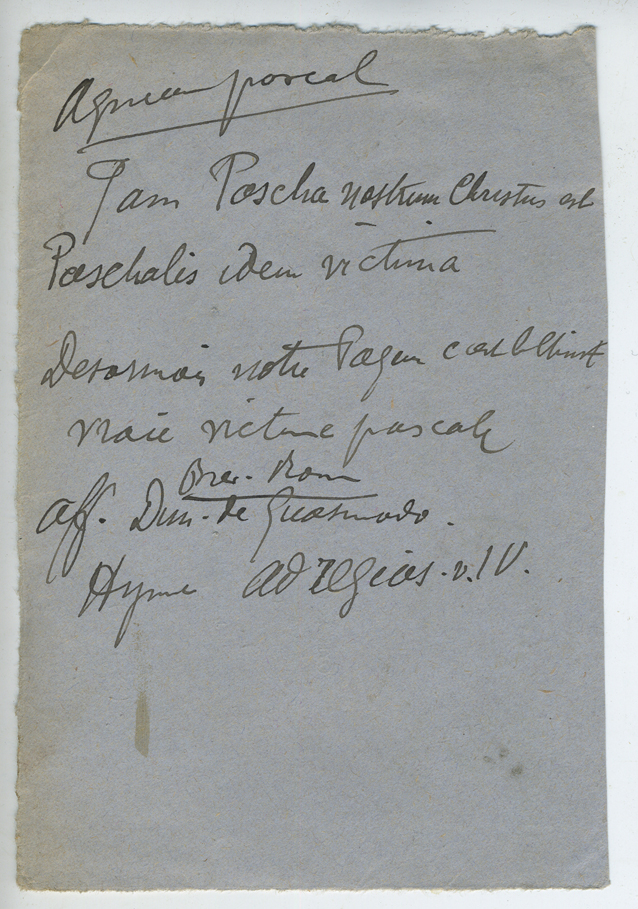 Agneau pascal
Jam Pascha nostrum Christus est
Paschalis idem victima
Desormais notre Pâque c'est le Christ
vraie victime pascale
Brev. Rom
Off. Dim. de Quasimodo.
Hymne Ad regias. v. IV.